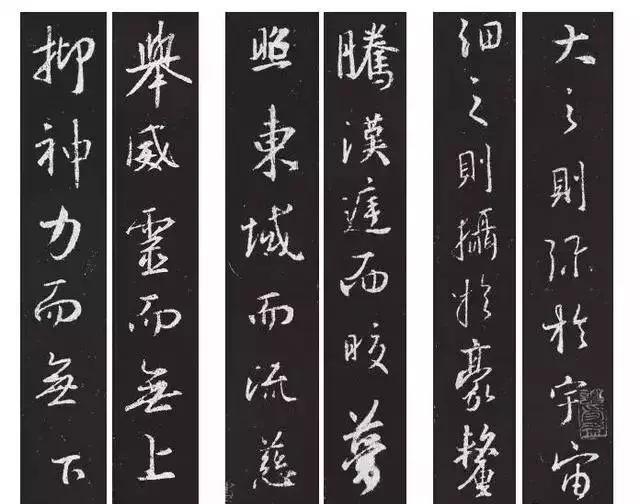 大之則弥於宇宙
細之則攝於豪釐
騰漢庭而皎夢
照東域而流慈
舉威靈而無上
抑神力而無下